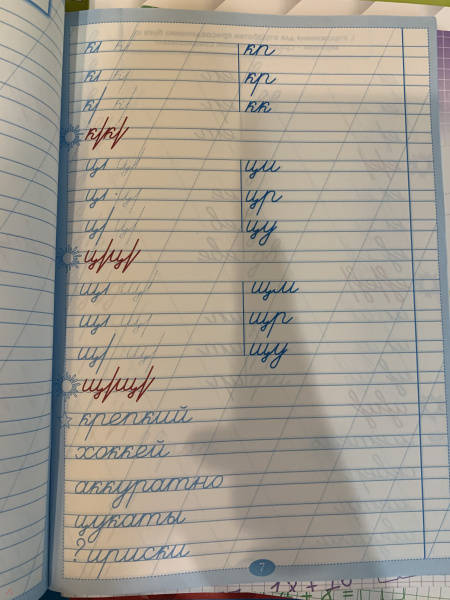 к к кп
к к кр
к к кк
к к
ц ц ци
ц ц цр
ц ц цу
ц ц
щ щ щи
щ щ щр
щ щ щу
щ щ
крепкий
хоккей
аккуратно
цукаты
? ириски
7